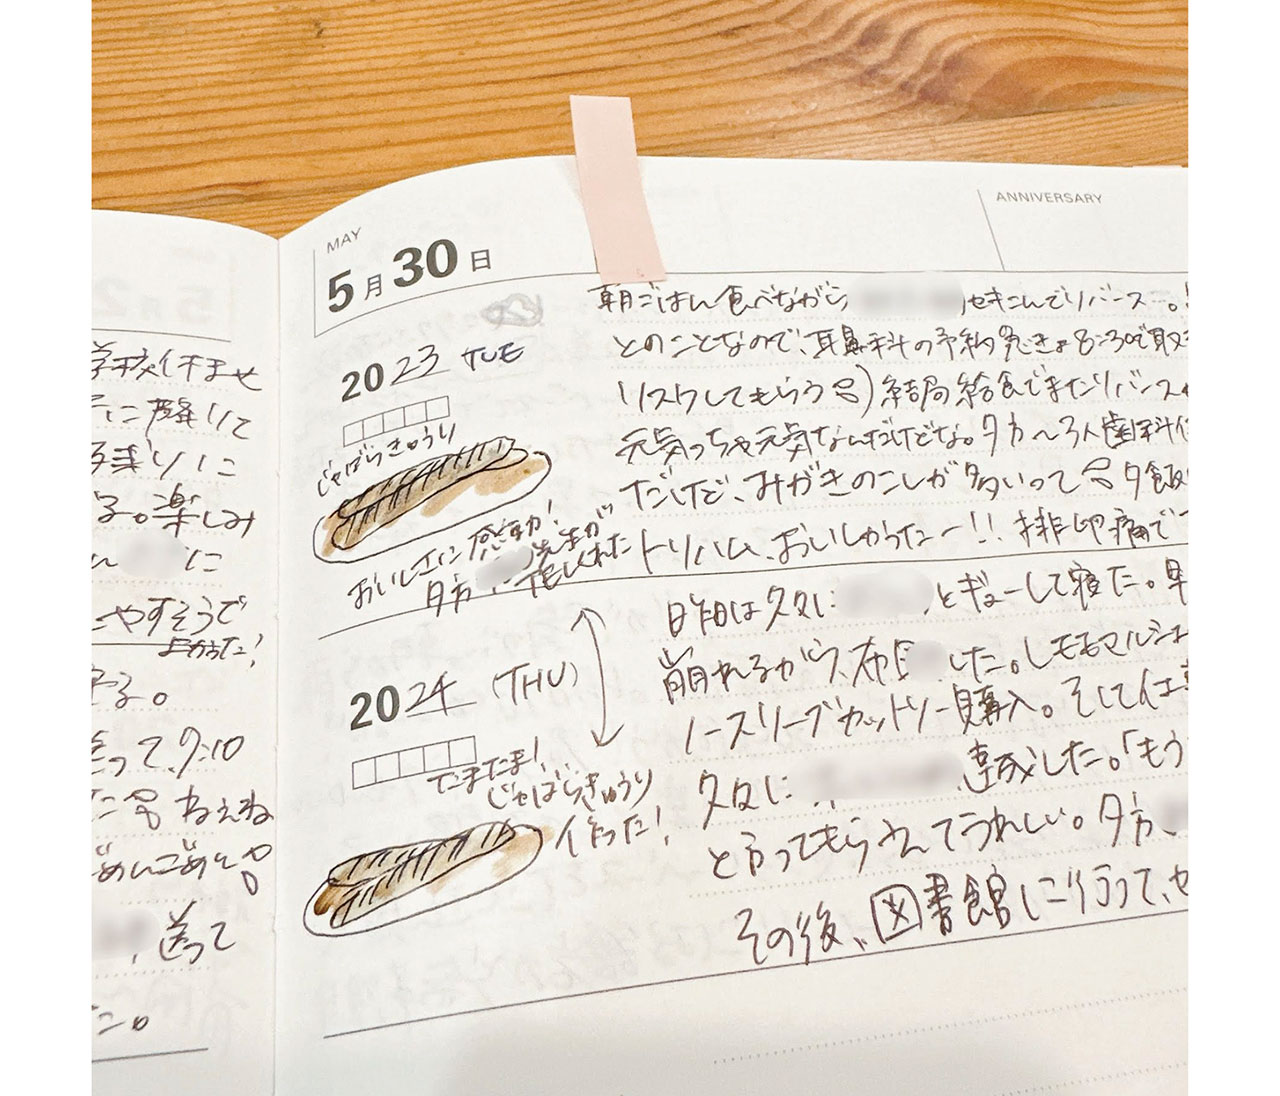 学校休ませ
に
残りに
る。楽しみ
に
やすそうで
よかった!
する。
って、9:10
ねえね
ごめんごめん
送って
た。
MAY
5月30日
ANNIVERSARY
2023 TUE
じゃばらきゅうり
おいしさに感動!
夕方 先生が
朝ごはん食べながら 、せきこんでリバース…。
とのことなので、耳鼻科の予約 8:30で取
リスケしてもらう 結局給食でまたリバース
元気っちゃ元気なんだけどな。夕方〜3人歯科
だけど、みがきのこしが多いって 夕飯
トリハム、おいしかったー!! 排卵痛で
2024 (THU)
たまたま!
じゃばらきゅうり
作った!
昨日は久々に とギューして寝た。早
崩れるから、布 した。しもむらマルシェ
ノースリーブカットソー購入。そして仕事
久々に 達成した。「もう
と言ってもらえてうれしい。夕方、
その後、図書館に行って、せ